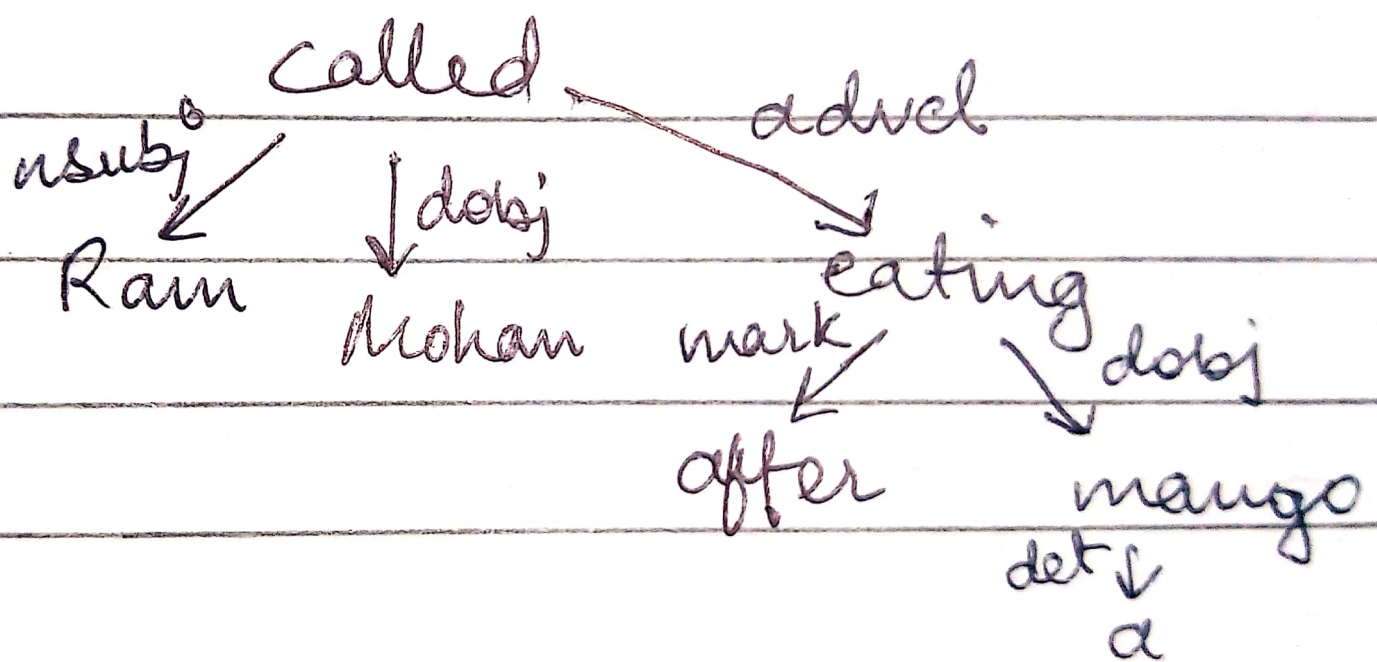 called
advcl
nsubj
dobj
Ram
eating
Mohan
mark
dobj
after
mango
det
a